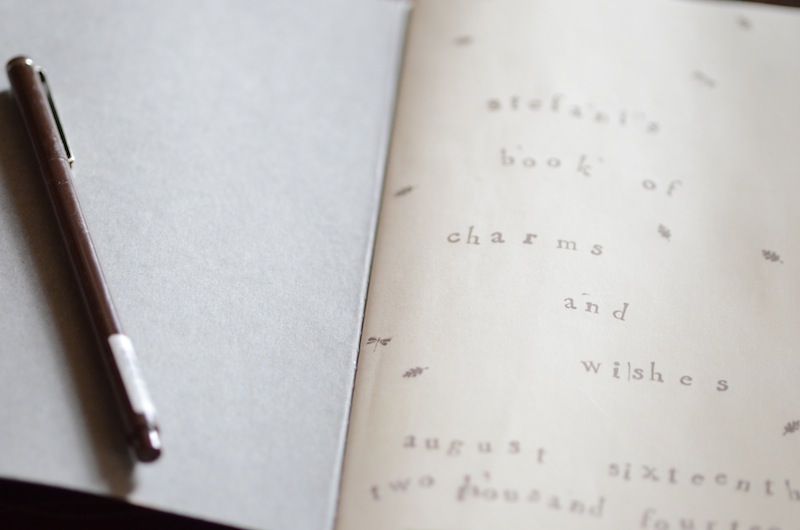 stefani's
book of
charms
and
wishes
august sixteenth
two thousand fourteen